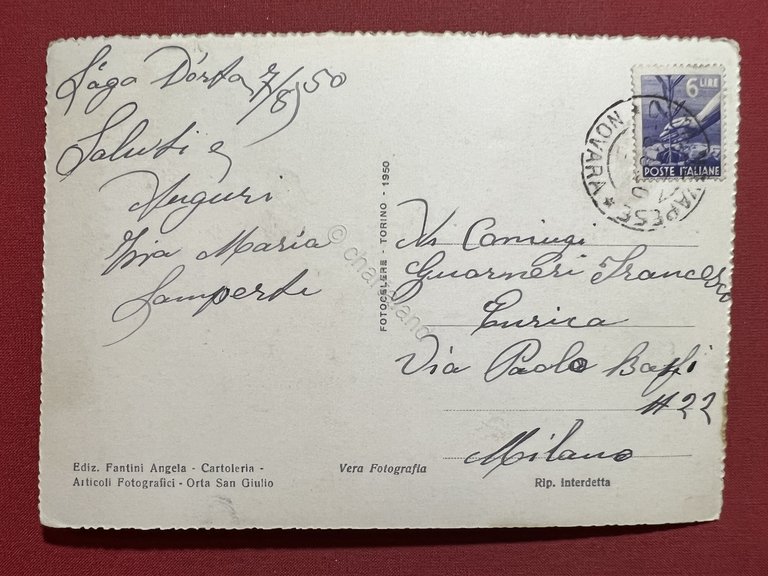 Lago D'orta 7/8/50
Saluti e
Auguri
Zia Maria
Lamperti
FOTOCELERE - TORINO - 1950
6 LIRE
POSTE ITALIANE
VARESE * NOVARA
Coniugi
Guarneri Francesco
Enrica
Via Paolo Baffi
# 22
Milano
Ediz. Fantini Angela - Cartoleria -
Articoli Fotografici - Orta San Giulio
Vera Fotografia
Rip. Interdetta